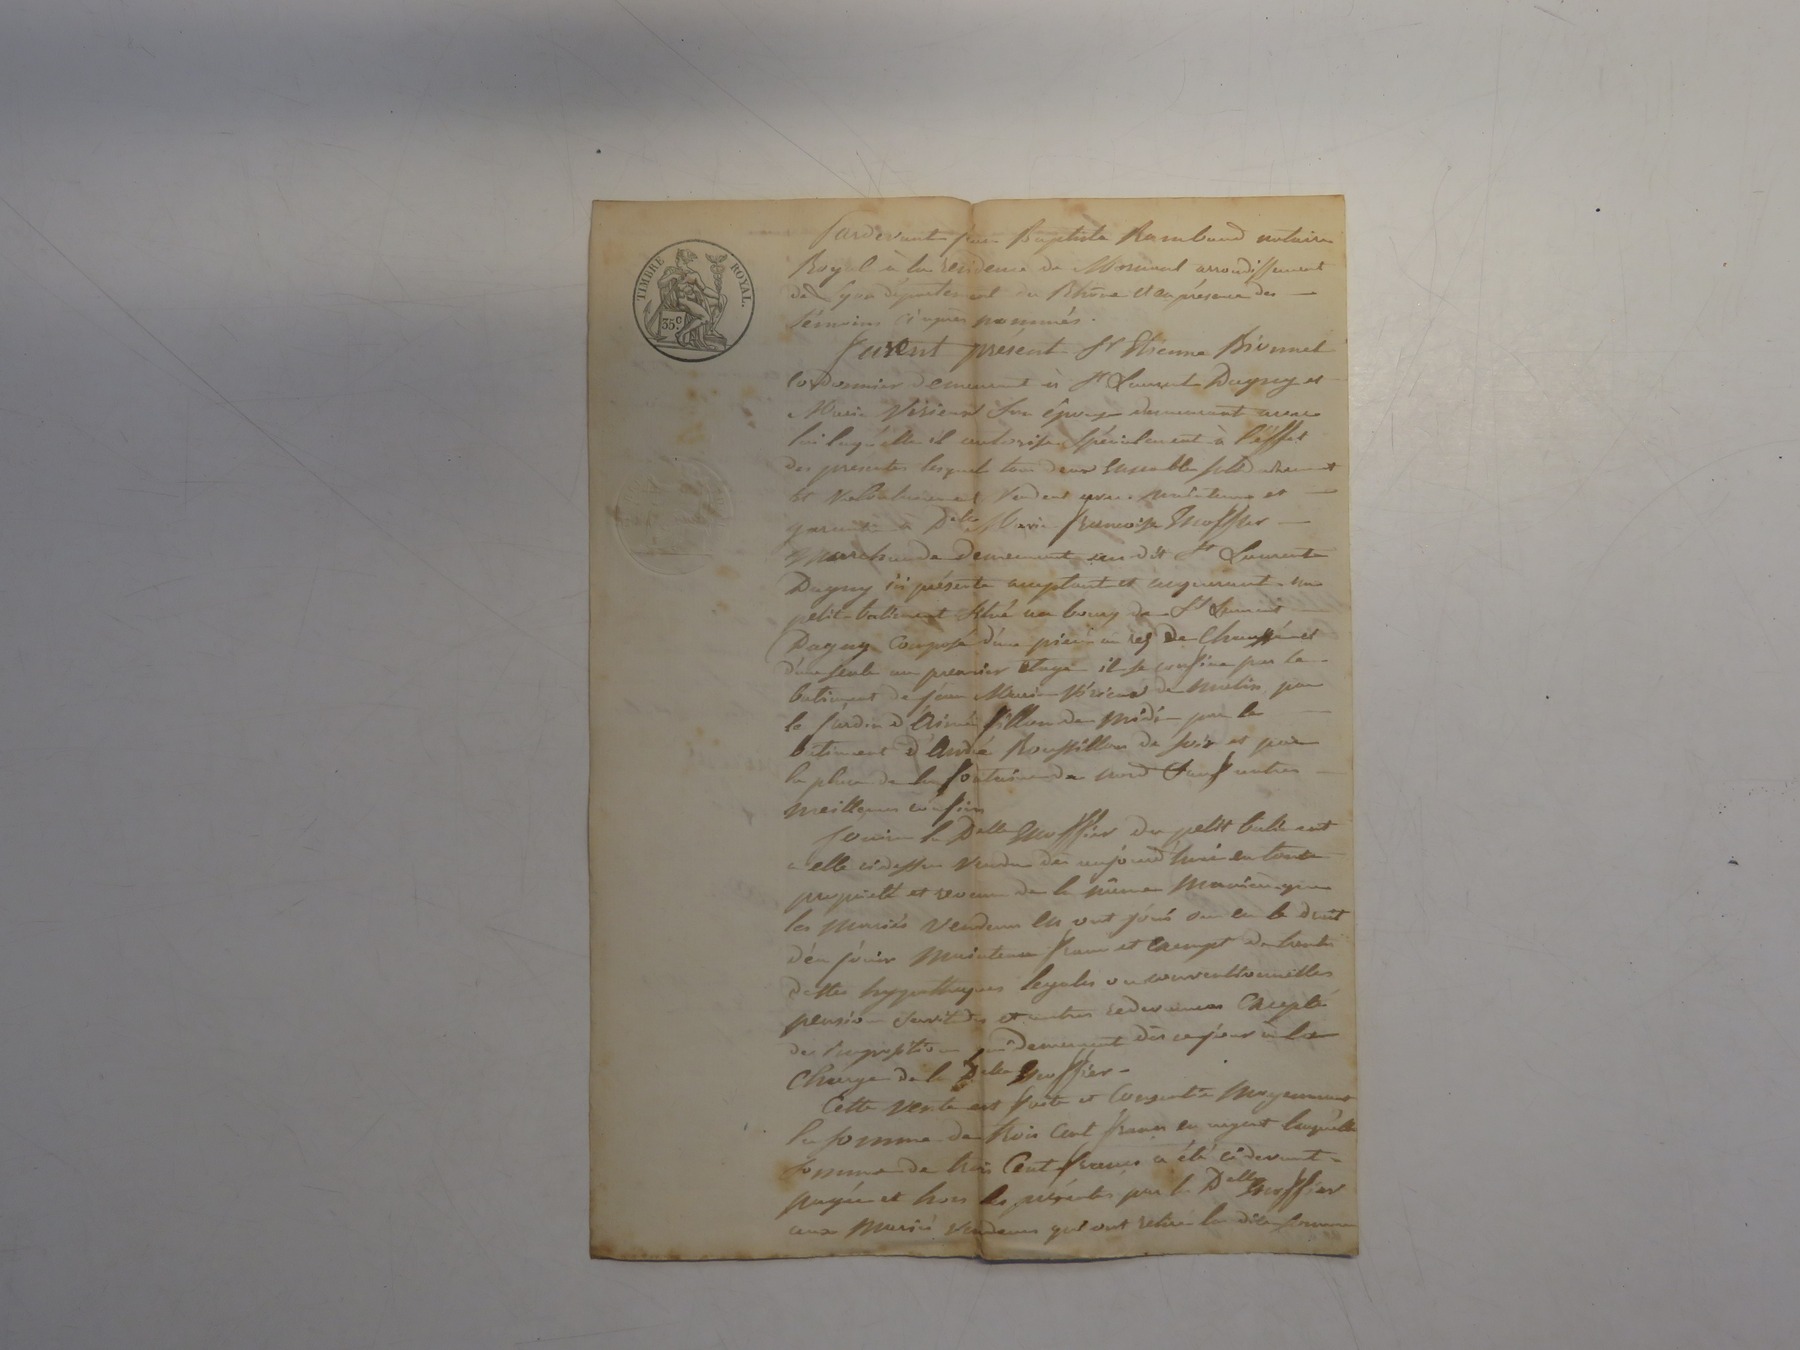 TIMBRE ROYAL.
35c
Pardevant Jean Baptiste Rambaud notaire
Royal à la residence de Mornant arrondissement
de Lyon département du Rhône et en présence des
témoins ci après nommés.
furent présent Sr Etienne
cordonnier demeurant à St Laurent Dagny et
Marie son épouse demeurant avec
lui laquelle il autorise spécialement à l'éffet
des presentes lesquels tous deux ensemble
et vendent avec maintenue et
garantie à Delle Marie francoise
Marchande demeurant au dit St Laurent
Dagny ici présente acceptant et acquerant un
petit batiment situé au bourg de St Laurent
Dagny composé d'une pièce au rez de Chaussé et
d'une seule au premier étage il se confine par le
batiment de Jean Marie de matin par
le jardin d'Aimé de midi par le
bâtiment d'André Roussillon de soir et par
la place de la fontaine de nord Sauf autres
meilleurs confins
Jouira la Delle du petit batiment
a elle cidessus vendu dès aujourd'hui en toute
propriété et revenu de la même manière que
les mariés vendeurs en ont joui ou eu le droit
d'en jouir maintenu franc et exempt de toutes
dettes hypothèques legales ou conventionnelles
pension servitudes et autres redevances Excepté
des impositions qui demeurent dès ce jour à la
Charge de la Delle
Cette vente est faite et consentie moyennant
la somme de trois Cent francs en argent laquelle
somme de trois Cent francs a été cidevant
payée et hors les présentes par la Delle
aux mariés vendeurs qui ont retiré la dite somme